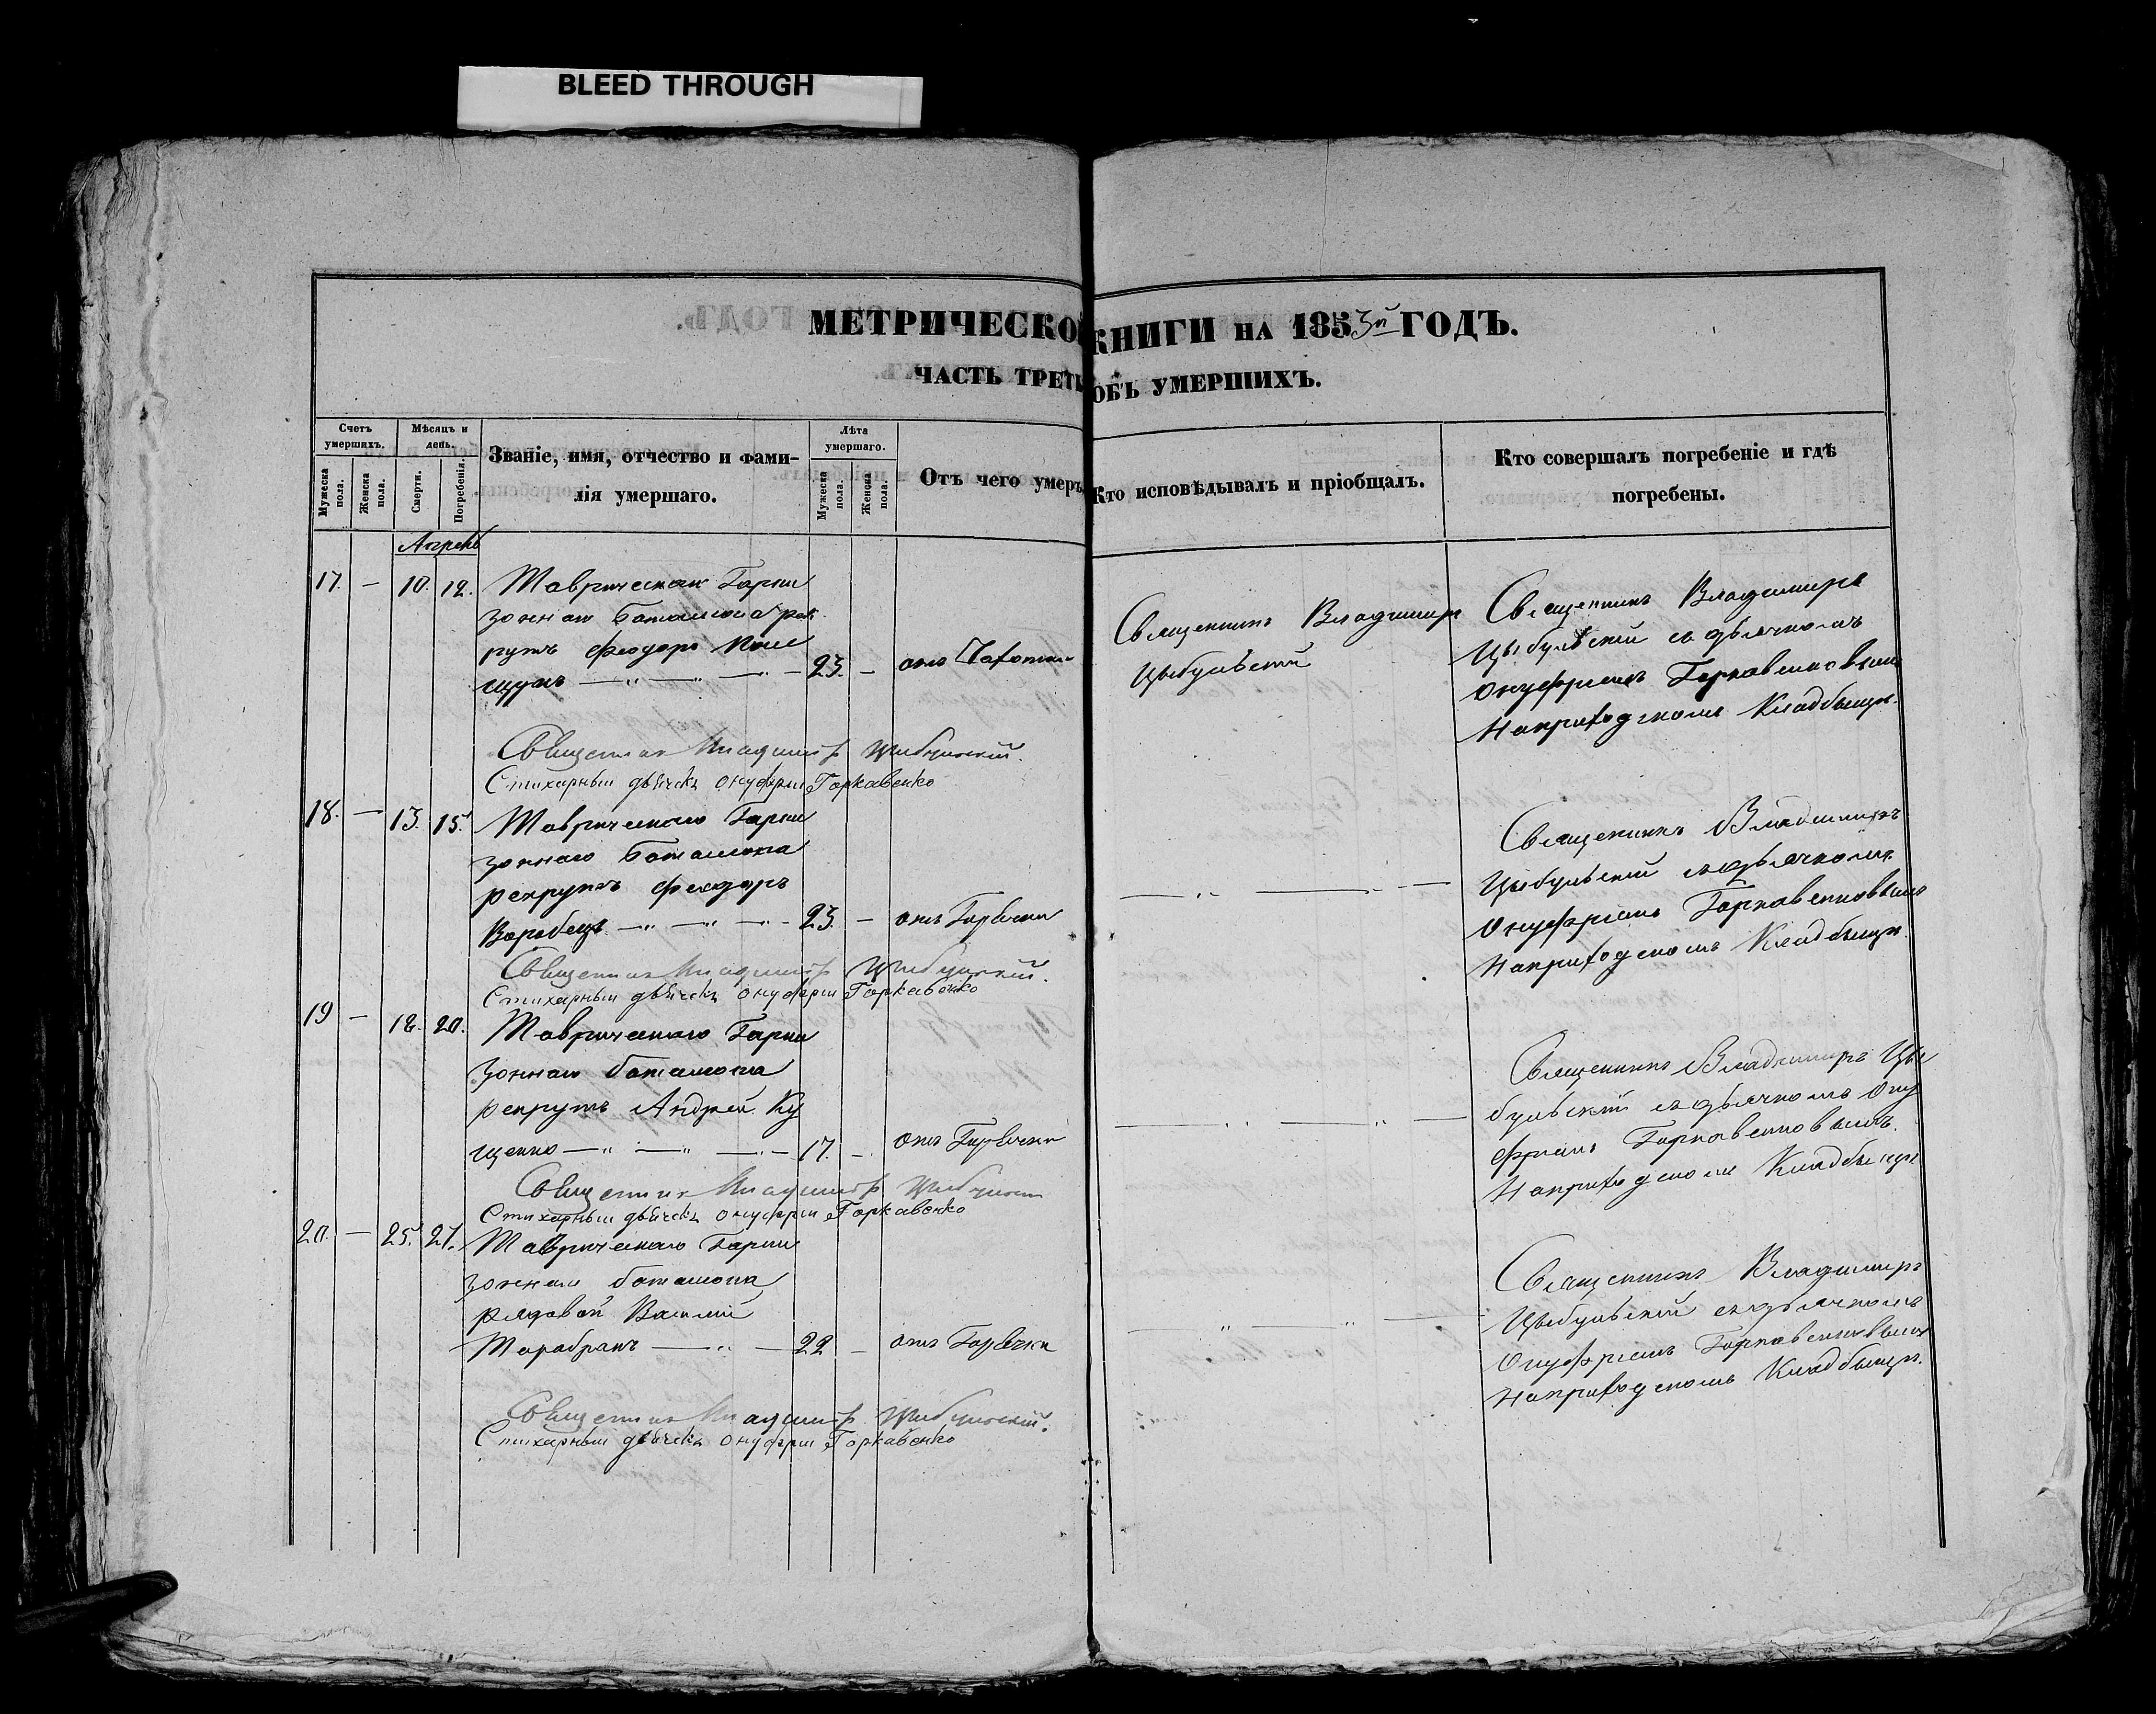 BLEED THROUGH
МЕТРИЧЕСКО КНИГИ НА 1853й ГОДЪ.
ЧАСТЬ ТРЕТЬ ОБЪ УМЕРШИХЪ.
Счетъ умершихъ.
Мужеска пола.
Женска пола.
Мѣсяцъ и день.
Смерти.
Погребенія.
Званіе, имя, отчество и фами-
лія умершаго.
Лѣта умершаго.
Мужеска пола.
Женска пола.
Отъ чего умеръ
Кто исповѣдывалъ и пріобщалъ.
Кто совершалъ погребеніе и гдѣ
погребены.
Апрель
17. — 10. 12. Таврическаго Гарни
зоннаго Баталіона рек
рутъ Феодоръ
щукъ — „ — „ — „ — 23. — отъ
Священникъ Владимиръ
Цыбульскій
Священникъ Владимиръ
Цыбульскій съ дьячкомъ
Онуфріемъ Горкавенковымъ
На приходскомъ Кладбищѣ.
Священник Владимир Цибульский.
Стихарный дьячекъ Онуфрий Горкавенко
18. — 13. 15. Таврическаго Гарни
зоннаго Баталіона
рекрутъ Феодоръ
Воробецъ — „ — „ — „ — 23. — отъ Горячки
— „ — „ —
Священникъ Владимиръ
Цыбульскій съ дьячкомъ
Онуфріемъ Горкавенковымъ
На приходскомъ Кладбищѣ.
Священник Владимир Цибульский.
Стихарный дьячекъ Онуфрий Горкавенко
19 — 18. 20. Таврическаго Гарни
зоннаго баталіона
рекрутъ Андрей Ку
щенко — „ — „ — „ — 17. — отъ Горячки
— „ — „ —
Священникъ Владимиръ Цы
бульскій съ дьячкомъ Ону
фріемъ Горкавенковымъ.
На приходскомъ Кладбищѣ
Священник Владимир Цибульский
Стихарный дьячекъ Онуфрий Горкавенко
20. — 25. 27. Таврическаго Гарни
зоннаго баталіона
рядовой Василій
Тарабранъ — „ — 22 — отъ Горячки
— „ — „ —
Священникъ Владимиръ
Цыбульскій съ дьячкомъ
Онуфріемъ Горкавенковымъ
На приходскомъ Кладбищѣ.
Священник Владимир Цибульский.
Стихарный дьячекъ Онуфрий Горкавенко